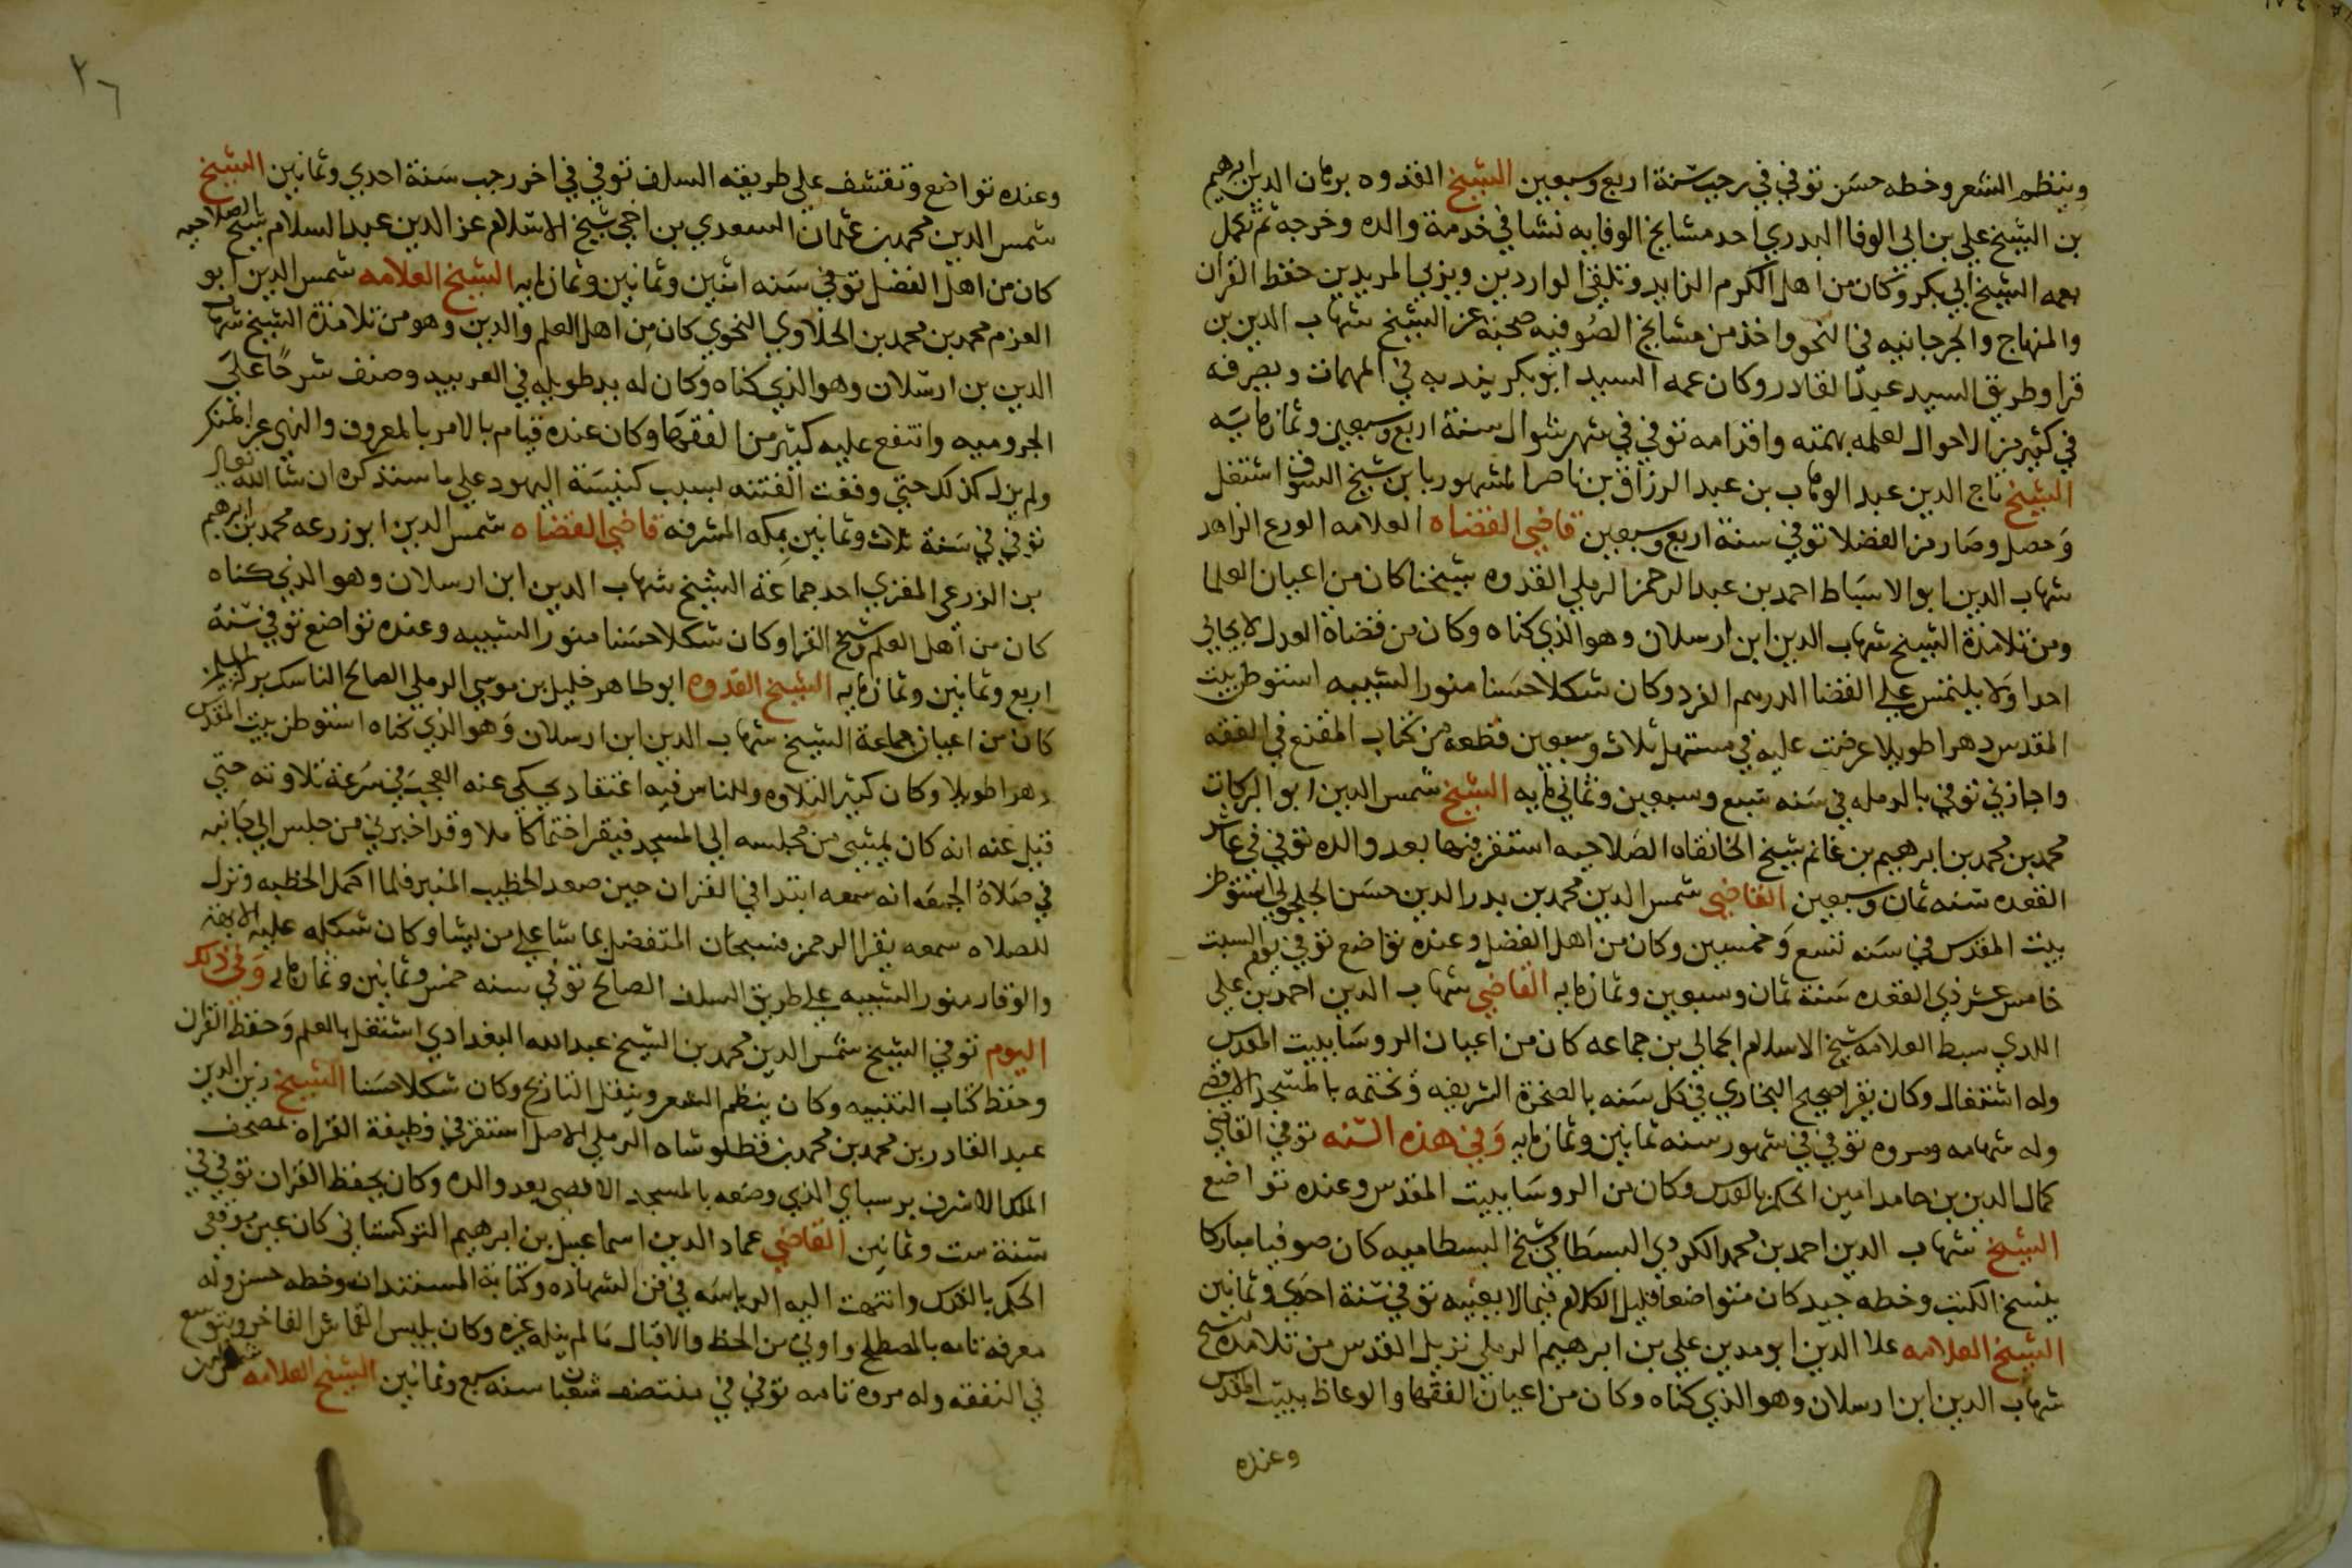 وينظم الشعر وخطه حسن توفي في رجب سنة اربع وسبعين الشيخ القدوه برهان الدين ابرهيم
بن الشيخ علي بن ابى الوفا البدري احد مشايخ الوفايه نشا في خدمة والده وخرجه ثم تكمل
بعمه الشيخ ابي بكر وكان من اهل الكرم الزايد وتلقي الواردين ويربي المريدين حفظ القران
والمنهاج والجرجانيه في النحو واخذ من مشايخ الصوفيه صحبة عن الشيخ شهاب الدين بن
قرا وطريق السيد عبد القادر وكان عمه السيد ابو بكر يندبه في المهمات ويصرفه
في كثير من الاحوال لعلمه بهمته واقدامه توفي في شهر شوال سنة اربع وسبعين وثمانمايه
الشيخ تاج الدين عبد الوهاب بن عبد الرزاق بن ناصر المشهور بابن شيخ السوق اشتغل
وحصل وصار من الفضلا توفي سنة اربع وسبعين قاضي القضاه العلامه الورع الزاهد
شهاب الدين ابو الاسباط احمد بن عبد الرحمن الرملي القدوه شيخنا كان من اعيان العلما
ومن تلامذة الشيخ شهاب الدين ابن ارسلان وهو الذي كناه وكان من قضاة العدل لا يحابي
احدا ولا يلتمس على القضا الدرهم الفرد وكان شكلا حسنا منور الشيبه استوطن بيت
المقدس دهرا طويلا عرضت عليه في مستهل ثلاث وسبعين قطعه من كتاب المقنع في الفقه
واجازني توفي بالرمله في سنه سبع وسبعين وثماني مايه الشيخ شمس الدين ابو البركات
محمد بن محمد بن ابرهيم بن غانم شيخ الخانقاه الصلاحيه استقر فيها بعد والده توفي في عاشر
القعده سنه ثمان وسبعين القاضي شمس الدين محمد بن بدر الدين حسن الجلجولي استوطن
بيت المقدس في سنه تسع وخمسين وكان من اهل الفضل وعنده تواضع توفي يوم السبت
خامس عشر ذي القعده سنة ثمان وسبعين وثمانمايه القاضي شهاب الدين احمد بن علي
اللدي سبط العلامه شيخ الاسلام الجمالي بن جماعه كان من اعيان الروسا ببيت المقدس
وله اشتغال وكان يقرا صحيح البخاري في كل سنه بالصخرة الشريفه ويختمه بالمسجد الاقصى
وله شهامه ومروه توفي في شهور سنه ثمانين وثمانمايه وفي هذه السنه توفي القاضي
كمال الدين بن حامد امين الحكم بالقدس وكان من الروسا ببيت المقدس وعنده تواضع
الشيخ شهاب الدين احمد بن محمد الكردي البسطامي شيخ البسطاميه كان صوفيا مباركا
ينسخ الكتب وخطه جيد كان متواضعا قليل الكلام فيما لا يعنيه توفي سنة احدي وثمانين
الشيخ العلامه علا الدين ابو مدين علي بن ابرهيم الرملي نزيل القدس من تلامذة شيخ
شهاب الدين ابن ارسلان وهو الذي كناه وكان من اعيان الفقها والوعاظ ببيت المقدس
وعنده
٢٦
وعنده تواضع وتقشف علي طريقه السلف توفي في اخر رجب سنة احدي وثمانين الشيخ
شمس الدين محمد بن عثمان السعودي بن اخي شيخ الاسلام عز الدين عبد السلام شيخ الصلاحيه
كان من اهل الفضل توفي سنه اثنين وثمانين وثمانمايه الشيخ العلامه شمس الدين ابو
العزم محمد بن محمد بن الحلاوي النحوي كان من اهل العلم والدين وهو من تلامذة الشيخ شهاب
الدين بن ارسلان وهو الذي كناه وكان له يد طويله في العربيه وصنف شرحا علي
الجروميه وانتفع عليه كثير من الفقها وكان عنده قيام بالامر بالمعروف والنهي عن المنكر
ولم يزل كذلك حتي وقعت الفتنه بسبب كنيسة اليهود علي ما سنذكره ان شا الله تعالى
توفي في سنة ثلاث وثمانين بمكه المشرفه قاضي القضاه شمس الدين ابو زرعه محمد بن ابرهيم
بن الزرعي المقري احد جماعة الشيخ شهاب الدين ابن ارسلان وهو الذي كناه
كان من اهل العلم وشيخ القرا وكان شكلا حسنا منور الشيبه وعنده تواضع توفي سنة
اربع وثمانين وثمانمايه الشيخ القدوه ابو طاهر خليل بن موسي الرملي الصالح الناسك بركة المسلمين
كان من اعيان جماعة الشيخ شهاب الدين ابن ارسلان وهو الذي كناه استوطن بيت المقدس
دهرا طويلا وكان كثير التلاوه وللناس فيه اعتقاد يحكي عنه العجب في سرعة تلاوته حتي
قيل عنه انه كان يمشي من مجلسه الي المسجد فيقرا ختما كاملا وقد اخبرني من جلس الي جانبه
في صلاة الجمعه انه سمعه ابتدا في القران حين صعد الخطيب المنبر فلما اكمل الخطبه ونزل
للصلاه سمعه يقرا الرحمن فسبحان المتفضل بما شا علي من يشا وكان شكله عليه الابهة
والوقار منور الشيبه على طريق السلف الصالح توفي سنه خمس وثمانين وثمانمايه وفي ذلك
اليوم توفي الشيخ شمس الدين محمد بن الشيخ عبد الله البغدادي اشتغل بالعلم وحفظ القران
وحفظ كتاب التنبيه وكان ينظم الشعر وينقل التاريخ وكان شكلا حسنا الشيخ زين الدين
عبد القادر بن محمد بن محمد بن قطلوشاه الرملي الاصل استقر في وظيفة القراه بمصحف
الملك الاشرف برسباي الذي وضعه بالمسجد الاقصى بعد والده وكان يحفظ القران توفي في
سنة ست وثمانين القاضي عماد الدين اسماعيل بن ابرهيم التركستاني كان عين موقعي
الحكم بالقدس وانتهت اليه الرياسه في فن الشهاده وكتابة المستندات وخطه حسن وله
معرفه تامه بالمصطلح واوتي من الحظ والاقبال ما لم ينله غيره وكان يلبس القماش الفاخر ويتوسع
في النفقه وله مروه تامه توفي في منتصف شعبان سنه سبع وثمانين الشيخ العلامه